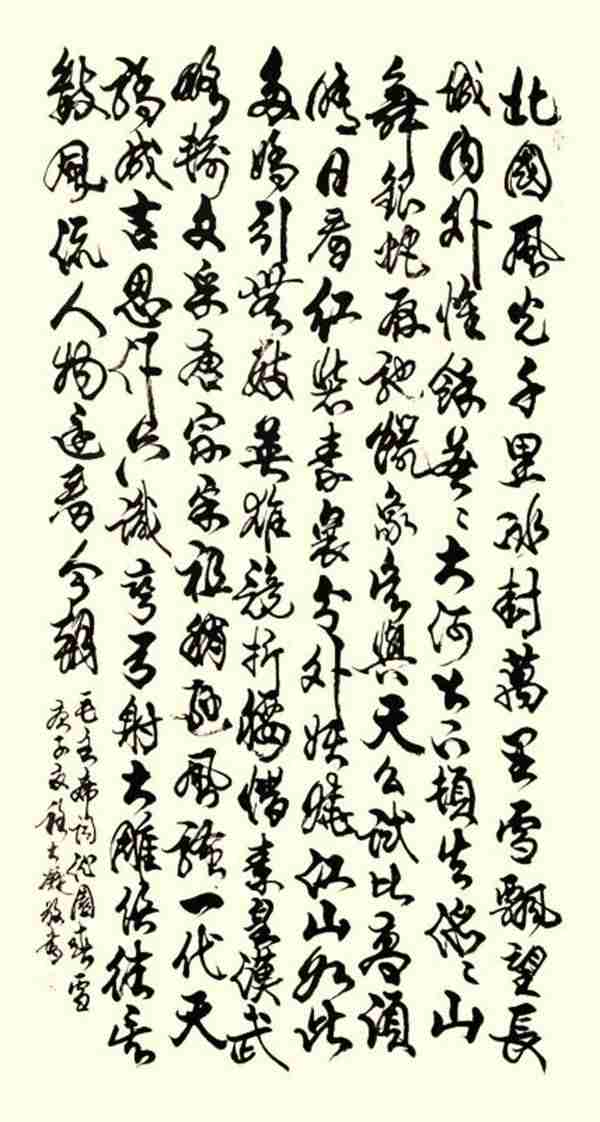 北國風光千里冰封萬里雪飄望長
城內外惟餘莽〻大河上下頓失滔〻山
舞銀蛇原馳蠟象欲與天公試比高須
晴日看紅裝素裹分外妖嬈江山如此
多嬌引無數英雄競折腰惜秦皇漢武
略輸文采唐宗宋祖稍遜風騷一代天
驕成吉思汗只識彎弓射大雕俱往矣
數風流人物還看今朝
毛主席詞沁園春雪
庚子